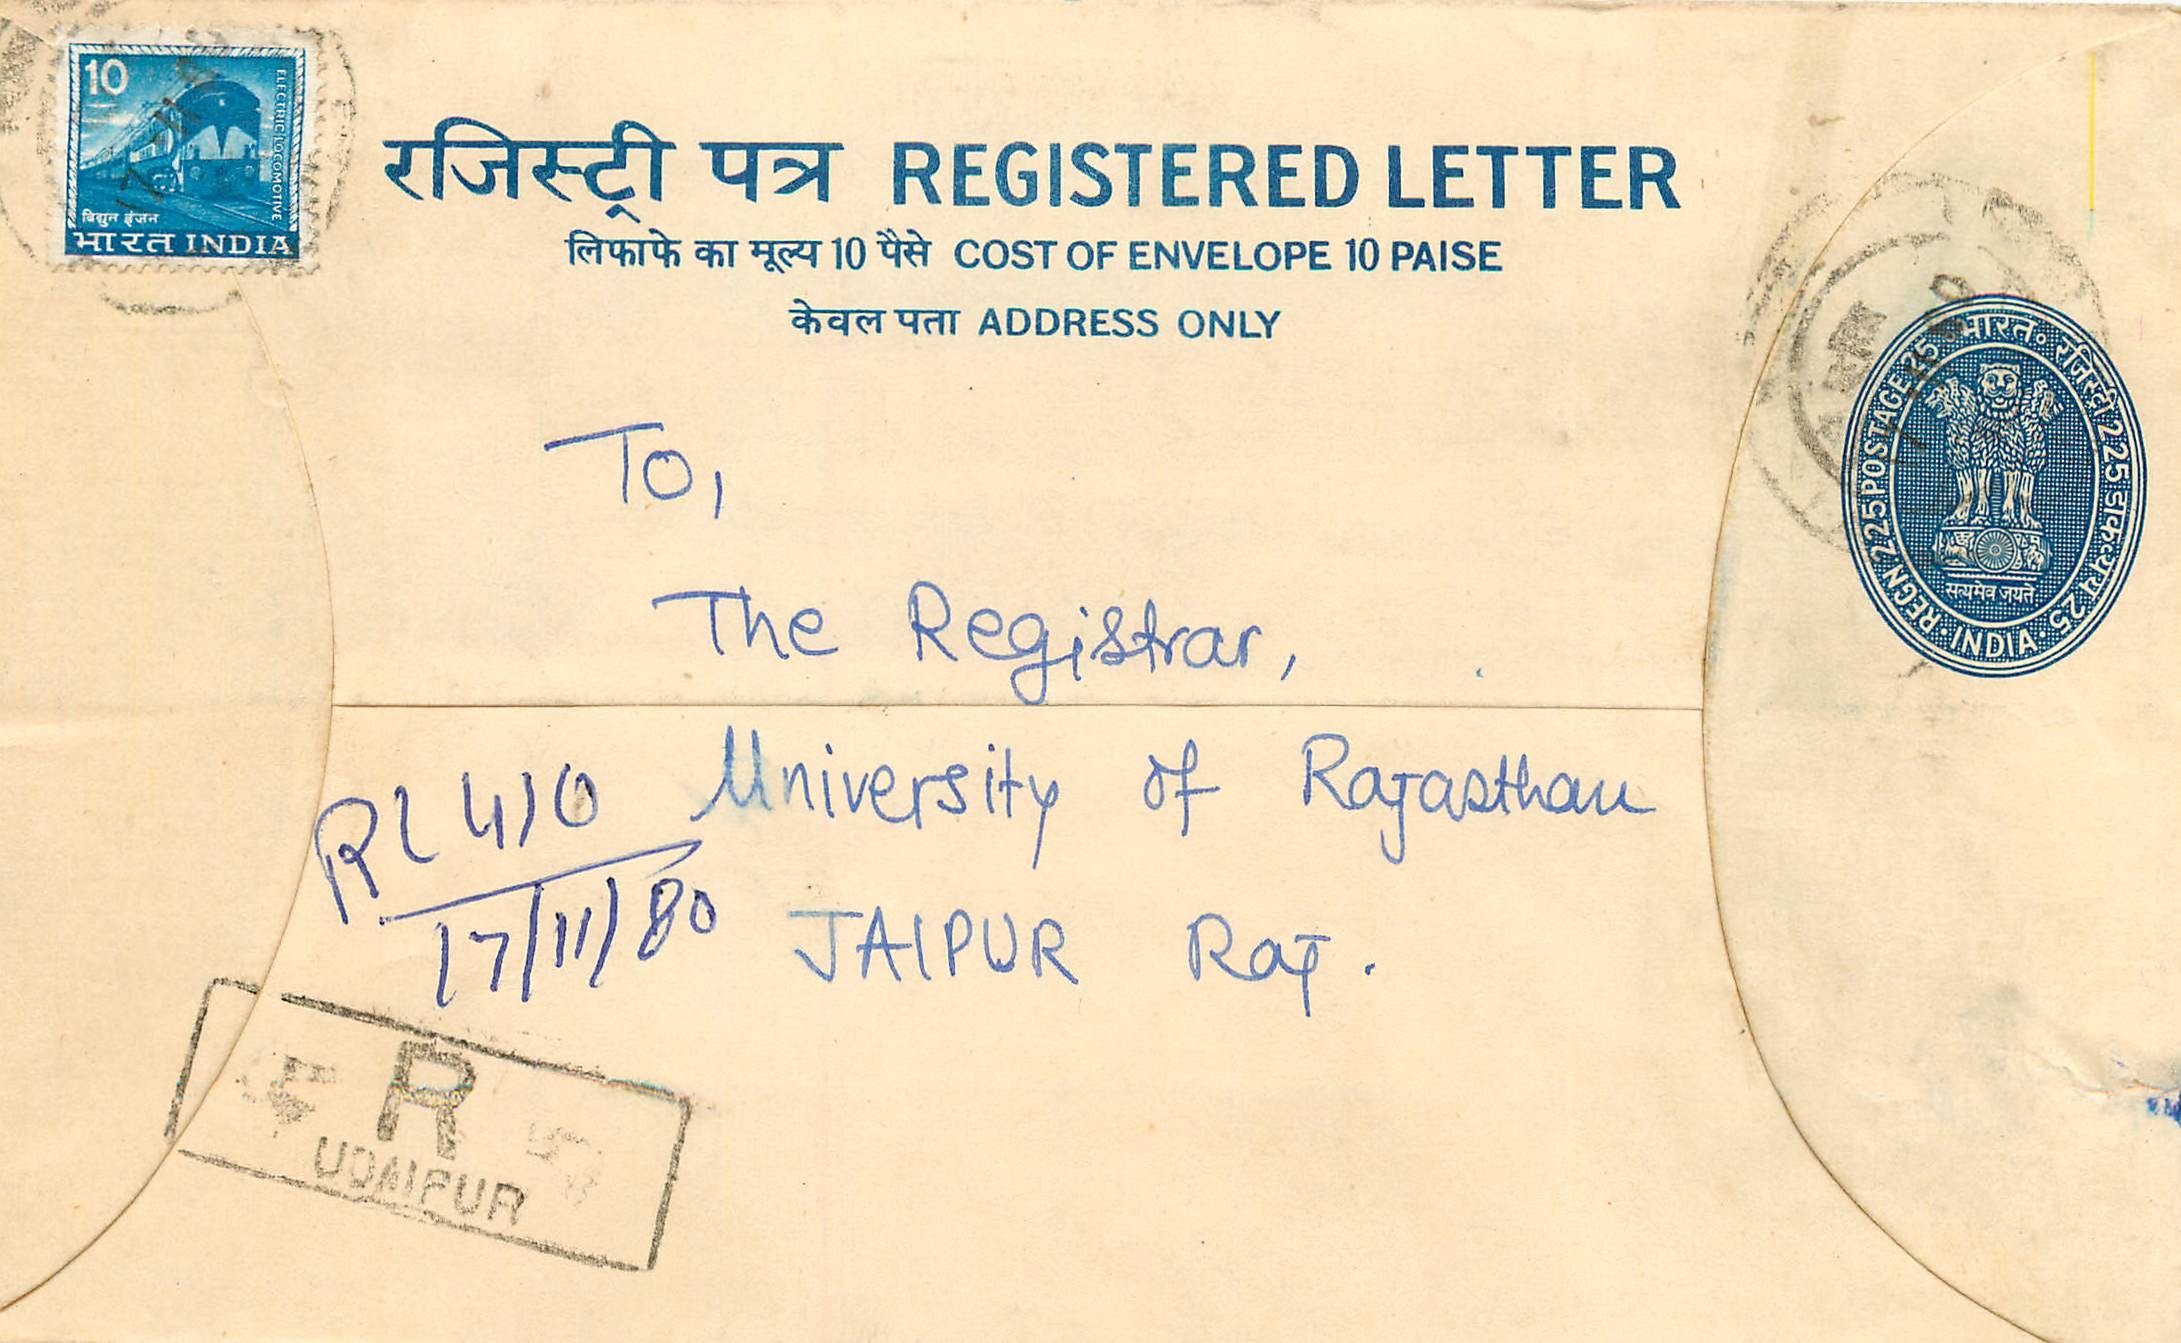 10
ELECTRIC LOCOMOTIVE
विद्युत इंजन
भारत INDIA
रजिस्ट्री पत्र REGISTERED LETTER
लिफाफे का मूल्य 10 पैसे COST OF ENVELOPE 10 PAISE
केवल पता ADDRESS ONLY
भारत · रजिस्ट्री 225 डाकव्यय 25 · INDIA · REGN. 225 POSTAGE 25
सत्यमेव जयते
To,
The Registrar,
University of Rajasthan
JAIPUR Raj.
RL 410
17/11/80
R
UDAIPUR